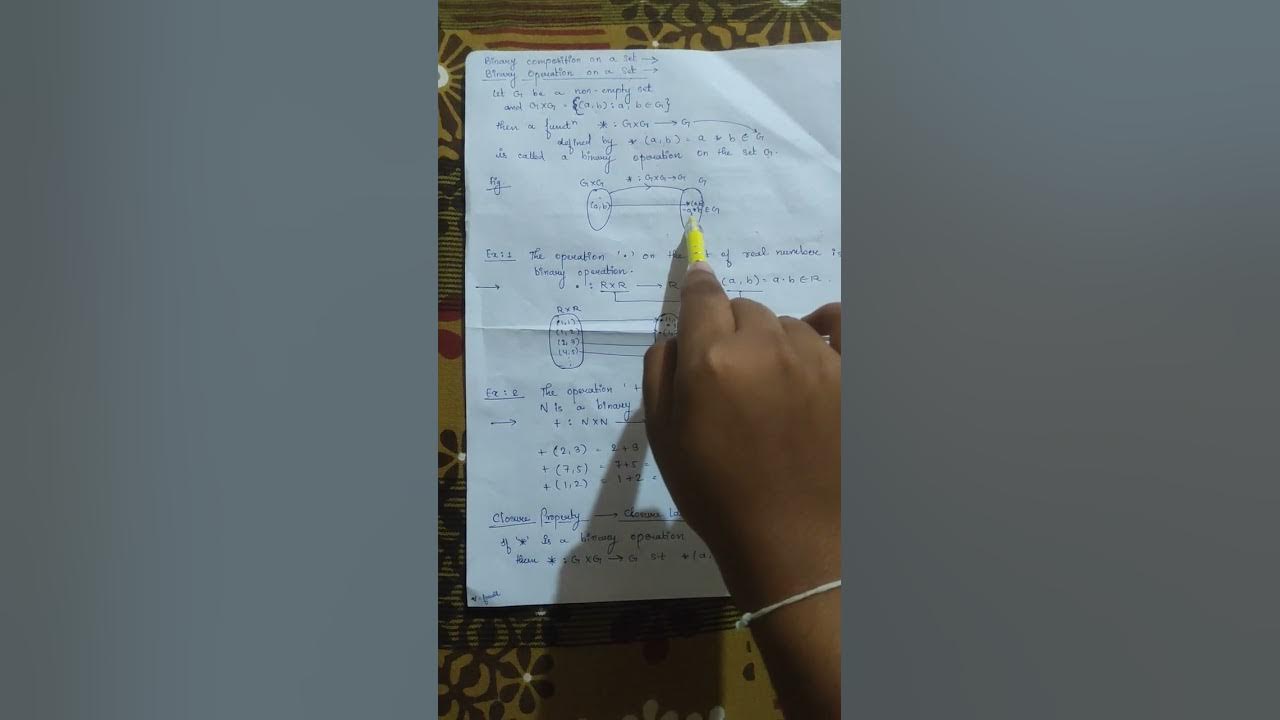 Binary composition on a set →
Binary Operation on a set →
Let G be a non-empty set
and G×G = {(a,b) : a, b ∈ G}
then a functⁿ * : G×G → G
defined by * (a,b) = a * b ∈ G
is called a binary operation on the set G.
fig
* : G×G → G
G×G G
(a,b) *(a,b)
= a*b ∈ G
Ex: 1 The operation '•' on the of real number is
binary operation.
→ • : R×R → R (a, b) = a·b ∈ R.
R×R
(1,1)
(1,2)
(2,3)
(4,5)
Ex: 2 The operation '+
N is a binary
→ + : N×N →
+ (2,3) = 2+3
+ (7,5) = 7+5 =
+ (1,2) = 1+2 =
Closure Property → Closure
If '*' is a binary operation
then * : G×G → G st *(a,